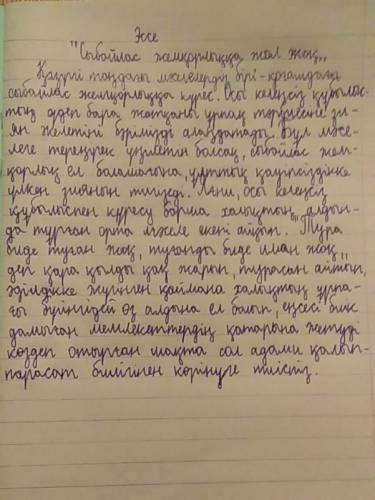 Эссе
"Сыбайлас жемқорлыққа жол жоқ,,
Қазіргі таңдағы мәселелердің бірі - қоғамдағы
сыбайлас жемқорлыққа күрес. Осы келеңсіз құбылыс-
тың әдеп бара жатқаны ұрпақ тәрбиесіне зи-
ян келетіні бәрімізді алаңдатады. Бұл мәсе-
леге тереңірек үңілетін болсақ, сыбайлас жем-
қорлық ел болашағына, ұлттық қауіпсіздікке
үлкен зиянын тигізеді. Яғни, осы келеңсіз
құбылыспен күресу барша халықтың алдын-
да тұрған орта мәселе екені айқын. "Тура
биде туған жоқ, туғанды биде иман жоқ,,
деп қара қылды қақ жарып, турасын айтып,
әділдікке жүгінген қаймана халықтың ұрпа-
ғы бүгінгідей өз алдына ел болып, еңсесі биік
дамыған мемлекеттердің қатарына жетуді
көздеп отырған шақта сол адами қалып-
парасат билігінен көрінуге тиіспіз.